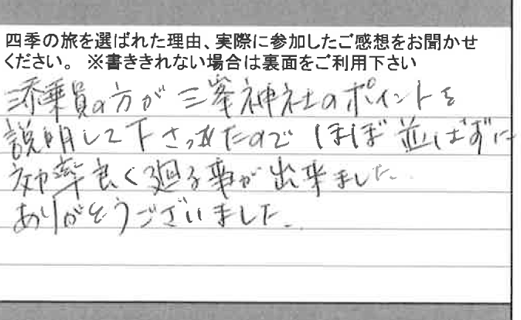 四季の旅を選ばれた理由、実際に参加したご感想をお聞かせ
ください。 ※書ききれない場合は裏面をご利用下さい
添乗員の方が三峯神社のポイントを
説明して下さったのでほぼ並ばずに
効率良く廻る事が出来ました。
ありがとうございました。